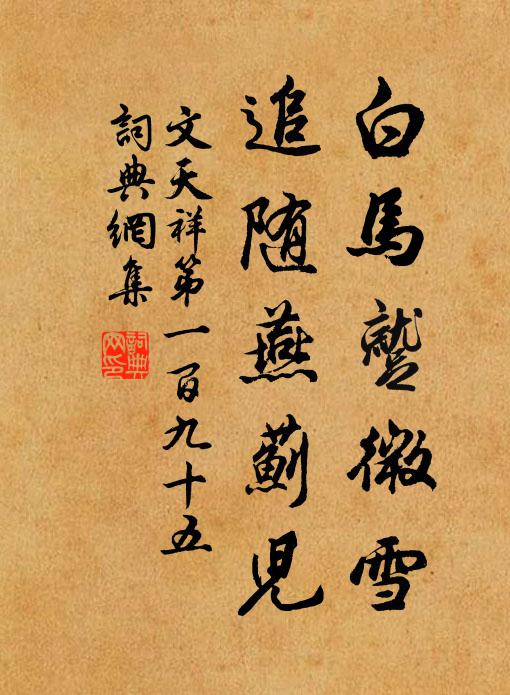 白馬蹵微雪
追随燕薊児
文天祥第一百九十五
詞典網集
詞典
网印